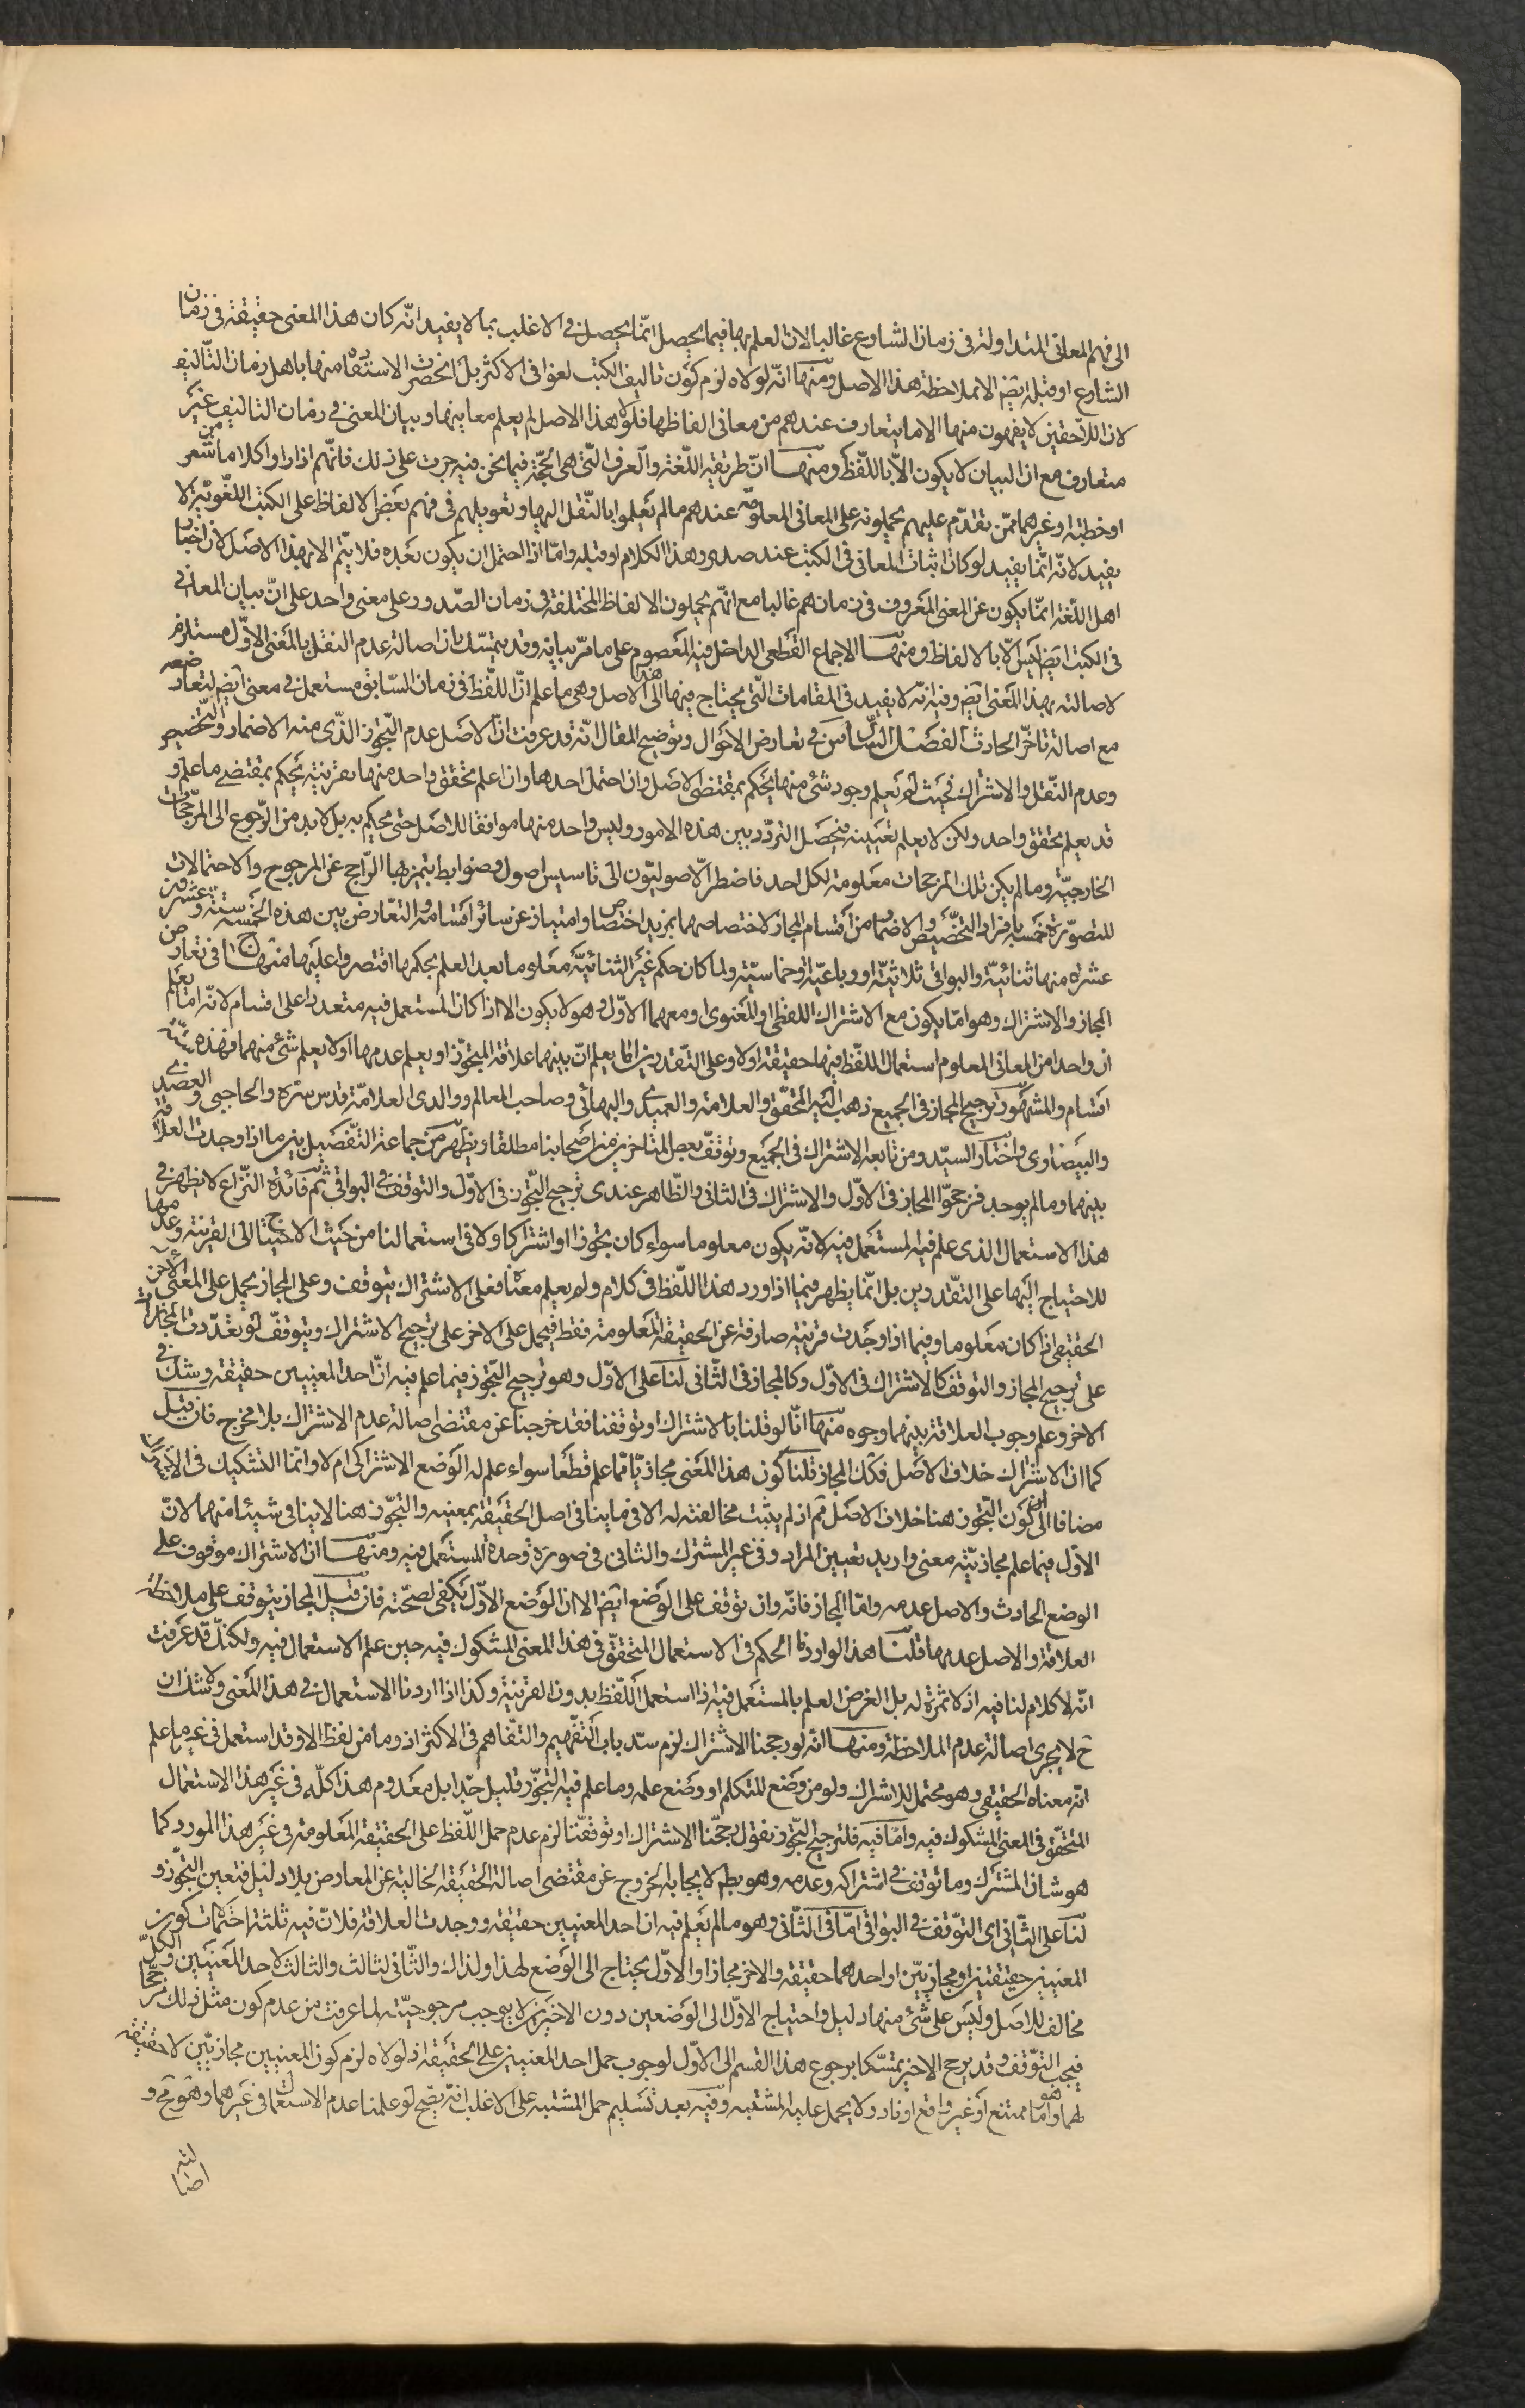 الى فهم المعانى المتداولة فى زمان الشارع غالبا لان العلم بها فيما يحصل انما يحصل فى الاغلب بما لا يفيد انّه كان هذا المعنى حقيقة فى زمان
الشارع او قبله ايض الا بملاحظة هذا الاصل ومنها انّه لولاه لزم كون تاليف الكتب لغوا فى الاكثر بل انحصرت الاستفادة منها باهل زمان التّاليف
لان اللاحقين لا يفهمون منها الا ما يتعارف عندهم من معانى الفاظها فلولا هذا الاصل لم يعلم معاينها وبيان المعنى فى زمان التاليف غير
متعارف مع ان البيان لا يكون الّا باللّفظ ومنها انّ طريقة اللّغة والعرف الّتى هى الحجّة فيما نحن فيه جرت على ذلك فانّهم اذا راوا كلاما من شعر
او خطبة او غيرهما ممّن تقدّم عليهم يحملونه على المعانى المعلومة عندهم مالم يعلموا بالنّقل اليها وتعويلهم فى فهم بعض الالفاظ على الكتب اللّغويّة لا
يفيد لانّه انّما يفيد لو كان اثبات المعانى فى الكتب عند صدور هذا الكلام او قبله وامّا اذا احتمل ان يكون بعده فلا يتم الا بهذا الاصل لان اخبار
اهل اللّغة انّما يكون عن المعنى المعروف فى زمانهم غالبا مع انّهم يحملون الالفاظ المختلفة فى زمان الصّدور على معنى واحد على انّ بيان المعانى
فى الكتب ايض ليس الّا بالالفاظ ومنها الاجماع القطعى الداخل فيه المعصوم على ما مرّ بيانه وقد يتمسّك بان اصالة عدم النقل بالمعنى الاوّل مستلزم
لاصالته بهذا المعنى ايض وفيه انّه لا يفيد فى المقامات الّتى يحتاج فيها الى هذا الاصل وهى ما علم انّ اللّفظ فى زمان السّابق مستعمل فى معنى ايض لتعارضه
مع اصالة تاخّر الحادث الفصل السّادس فى تعارض الاحوال وتوضيح المقال انّه قد عرفت انّ الاصل عدم التّجوز الذّى منه الاضمار والتّخصيص
وعدم النّقل والاشتراك فحيث لم يعلم وجود شئ منها يحكم بمقتضى الاصل وان احتمل احدها وان علم تحقق واحد منها بقرينة يحكم بمقتضى ما علم و
قد يعلم تحقق واحد ولكن لا يعلم تعيينه فيحصل التردّد بين هذه الامور وليس واحد منها موافقا للاصل حتى يحكم به بل لا بد من الرّجوع الى المرجّحات
الخارجيّة ومالم يكن تلك المرجحات معلومة لكل احد فاضطرّ الاصوليّون الى تاسيس اصول وضوابط يتميز بها الرّاجح عن المرجوح والاحتمالات
المتصوّرة خمسة بافراد التّخصيص والاضمار من اقسام المجاز لاختصاصهما بمزيد اختصاص وامتياز عن سائر اقسامه والتعارض بين هذه الخمسة ستّة وعشرون
عشرة منها ثنائيّة والبواقى ثلاثيّة او رباعيّة وخماسيّة ولما كان حكم غير الثنائيّة معلوما بعد العلم بحكمها اقتصروا عليها منها ج ا فى تعارض
المجاز والاشتراك وهو امّا يكون مع الاشتراك اللفظى او المعنوى او معهما الاوّل وهو لا يكون الا اذا كان المستعمل فيه متعددا على اقسام لانّه امّا يعلم
ان واحدا من المعانى المعلوم استعمال اللفظ فيها حقيقة اولا وعلى التّقديرين امّا يعلم انّ بينهما علاقة التجوّز او يعلم عدمها او لا يعلم شئ منهما فهذه ستّة
اقسام والمشهور ترجيح المجاز فى الجميع ذهب اليه المحقّق والعلامة والعميدى والبهائى وصاحب المعالم ووالدى العلامّة قدس سرّه والحاجبى والعضدى
والبيضاوى واختار السيّد ومن تابعه الاشتراك فى الجميع وتوقف بعض المتاخرين من اصحابنا مطلقا ويظهر من جماعة التّفصيل بين ما اذا وجدت العلاقة
بينهما ومالم يوجد فرجحوا المجاز فى الاوّل والاشتراك فى الثانى والظّاهر عندى ترجيح التّجوز فى الاوّل والتوقف فى البواقى ثم فائدة النّزاع لا يظهر فى
هذا الاستعمال الذى علم فيه المستعمل فيه لانّه يكون معلوما سواء كان تجوزا او اشتراكا ولا فى استعمالنا من حيث الاحتياج الى القرينة وعدمها
للاحتياج اليها على التقديرين بل انّما يظهر فيما اذا ورد هذا اللّفظ فى كلام ولم يعلم معناه فعلى الاشتراك يتوقف وعلى المجاز يحمل على المعنى
الحقيقى اذا كان معلوما وفيما اذا وجدت قرينة صارفة عن الحقيقة المعلومة فقط فيحمل على الاخر على ترجيح الاشتراك ويتوقف لو تعدّدت المجازات
على ترجيح المجاز والتوقف كالاشتراك فى الاوّل وكالمجاز فى الثّانى لنا على الاوّل وهو ترجيح التّجوز فيما علم فيه انّ احد المعنيين حقيقة وشك فى
الاخر وعلم وجوب العلاقة بينهما وجوه منها انّا لو قلنا بالاشتراك او توقفنا فقد خرجنا عن مقتضى اصالة عدم الاشتراك بلا مخرج فان قيل
كما ان الاشتراك خلاف الاصل فكك المجاز قلنا كون هذا المعنى مجازيّا ممّا علم قطعا سواء علم له الوضع الاشتراكى ام لا وانّما التشكيك فى
مضافا الى ان كون التّجوز هنا خلاف الاصل ثم اذ لم يثبت مخالفته له الا فى ما ينافى اصل الحقيقة بمعنييه والتجوّز هنا لا ينافى شيئا منهما لانّ
الاوّل فيما علم مجازيّة معنى واريد تعيين المراد وفى غير المشترك والثانى فى صورة وحدة المستعمل فيه ومنها ان الاشتراك موقوف على
الوضع الحادث والاصل عدمه وامّا المجاز فانّه وان توقف على الوضع ايض الا ان الوضع الاوّل يكفى لصحّته فان قيل المجاز يتوقف على ملاحظة
العلاقة والاصل عدمها قلنا هذا لو اردنا الحكم فى الاستعمال المتحقّق فى هذا المعنى المشكوك فيه حين علم الاستعمال فيه ولكنّك قد عرفت
انّه لا كلام لنا فيه اذ لا ثمرة له بل الغرض العلم بالمستعمل فيه اذا استعمل اللّفظ بدون القرينة وكذا اذا اردنا الاستعمال فى هذا المعنى ولا شك ان
ح لا يجرى اصالة عدم الملاحظة ومنها انّه لو رجحنا الاشتراك لزم سدّ باب التّفهيم والتّفاهم فى الاكثر اذ وما من لفظ الا وقد استعمل فى غير ما علم
انّه معناه الحقيقى وهو محتمل للاشتراك ولو من وضع المتكلم او وضع علمه وما علم فيه التجوّز قليل جّدا بل معدوم هذا كلّه فى غير هذا الاستعمال
المتحقّق فى المعنى المشكوك فيه وامّا فيه فلترجيح التّجوز نقول لو رجحّنا الاشتراك او توقفّنا لزم عدم حمل اللّفظ على الحقيقة المعلومة فى غير هذا المورد كما
هو شان المشترك وما توقف فى اشتراكه وعدمه وهو بط لايجابه الخروج عن مقتضى اصالة الحقيقة الخالية عن المعارض بلا دليل فتعين التجّوز و
لنا على الثّانى اى التوّقف فى البواقى امّا فى الثّانى وهو مالم يعلم فيه ان احد المعنيين حقيقة ووجدت العلاقة فلانّ فيه ثلثة احتمالات كون
المعنيين حقيقتين او مجازييّن او احدهما حقيقة والاخر مجازا والاوّل يحتاج الى الوضع لهذا ولذاك والثّانى لثالث والثالث لاحد المعنيين والكلّ
مخالف للاصل وليس على شئ منها دليل واحتياج الاوّل الى الوضعين دون الاخيرين لا يوجب مرجوحيّته لما عرفت من عدم كون مثل ذلك مرجّحا
فيجب التّوقف وقد يرجح الاخير بمتسّكا برجوع هذا القسم الى الاوّل لوجوب حمل احد المعنيين على الحقيقة اذ لولاه لزم كون المعنيين مجازييّن لا حقيقة
لهما وهو امّا ممتنع او غير واقع او نادر ولا يحمل عليه المشتبه وفيه بعد تسليم حمل المشتبه على الاغلب انّه يصّح لو علمنا عدم الاستعمال فى غيرهما وهو مح و